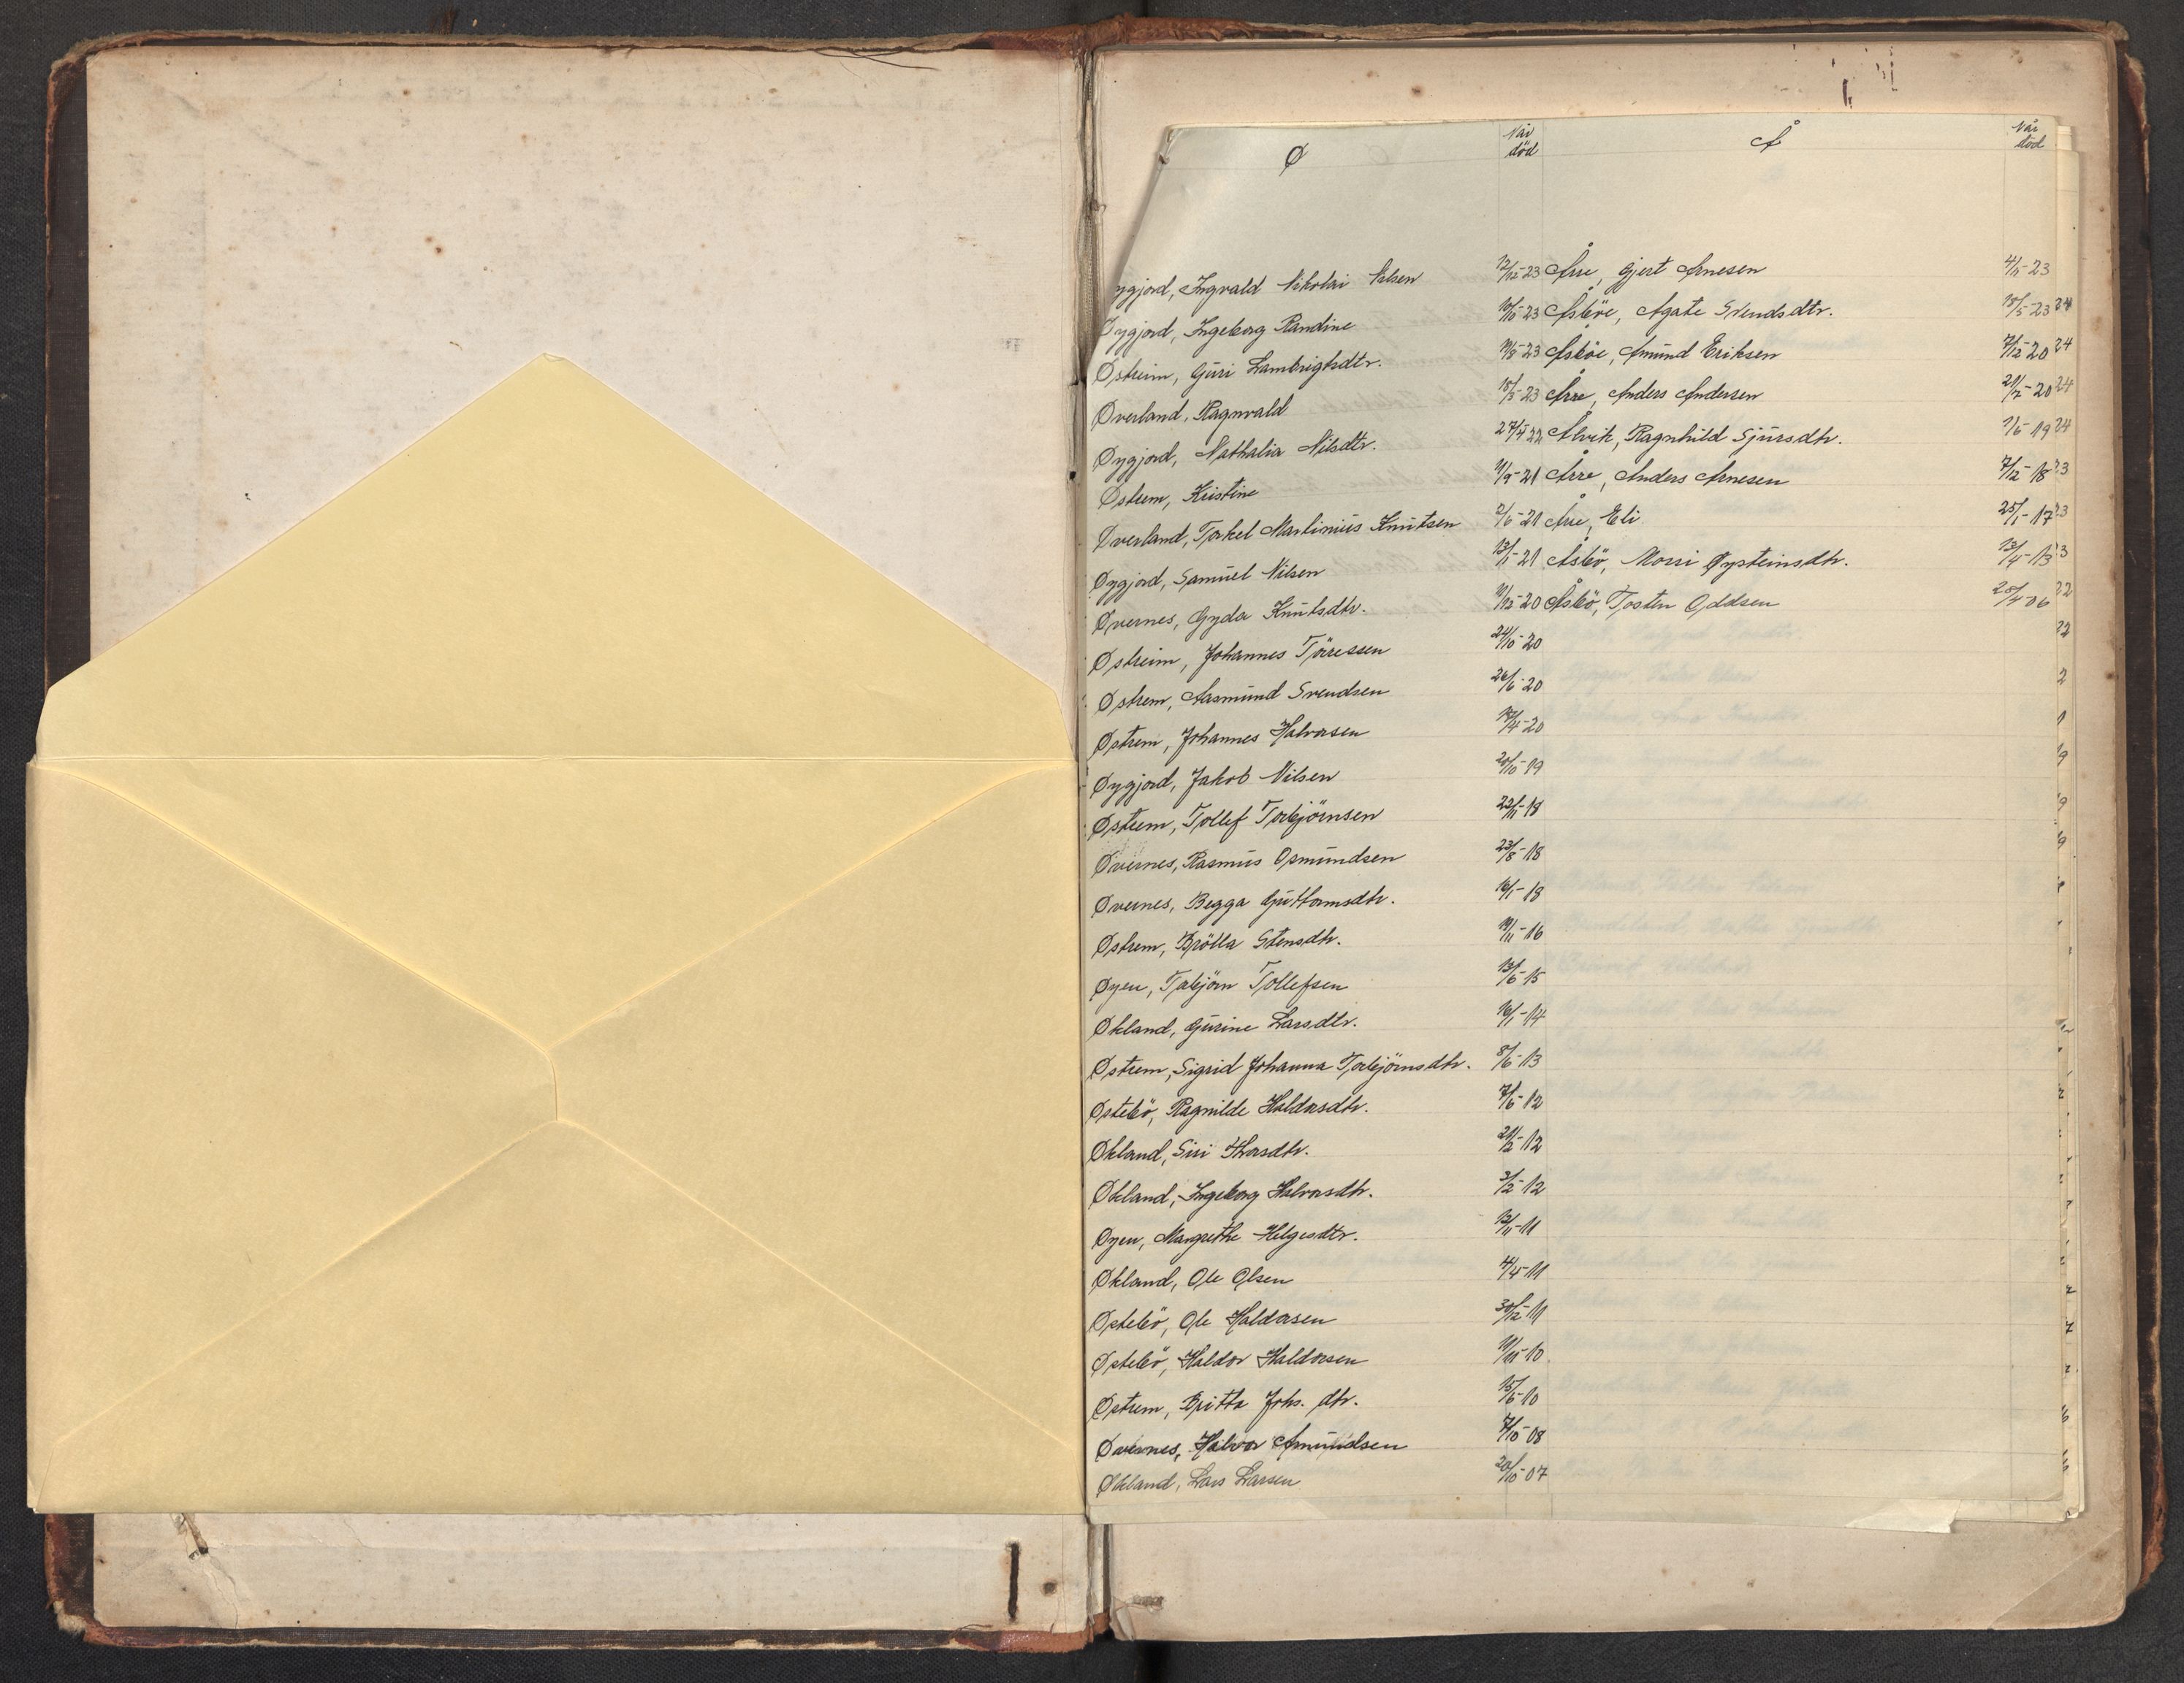 Ø Når død Å Når død
ygjord, Ingvald Nikolai Nilsen 12/12-23 Årre, Gjert Arnesen 4/11-23
Øygjord, Ingeborg Randine 10/10-23 Åsböe, Agate Svendsdtr. 15/5-23
Østreim, Guri Lambrigtsdtr. 19/8-23 Åsböe, Amund Eriksen 7/12-20
Øverland, Ragnvald 15/3-23 Årre, Anders Andersen 21/7-20
Øygjord, Nathalia Nilsdtr. 27/4-22 Ålvik, Ragnhild Sjursdtr. 1/6-19
Østrem, Kristine 1/9-21 Årre, Anders Arnesen 7/12-18
Øverland, Torkel Martinius Knutsen 2/6-21 Årre, Eli 25/1-17
Øygjord, Samuel Nilsen 13/1-21 Åsbö, Øysteinsdtr. 13/4-13
Øvernes, Gyda Knutsdtr. 11/12-20 Åsbö, Tosten Oddsen 28/4-06
Østreim, Johannes Törressen 24/10-20
Østrem, Aasmund Svendsen 26/6-20
Østrem, Johannes Halvorsen 14/4-20
Øygjord, Jakob Nilsen 20/10-19
Østrem, Tollef Torbjörnsen 22/11-18
Øvernes, Rasmus Osmundsen 23/8-18
Øvernes, Begga Guttormsdtr. 16/1-18
Østrem, Brölla Stensdtr. 19/11-16
Øyen, Torbjörn Tollefsen 13/6-15
Økland, Gurine Larsdtr. 16/1-14
Østrem, Sigrid Johanna Torbjörnsdtr. 8/6-13
Østebö, Ragnilde Haldorsdtr. 7/6-12
Økland, Siri Thorsdtr. 21/2-12
Økland, Ingeborg Halvorsdtr. 3/2-12
Øyen, Margrethe Helgesdtr. 12/11-11
Økland, Ole Olsen 4/4-11
Østebö, Ole Haldorsen 30/12-11
Østebö, Haldor Haldorsen 11/11-10
Østrem, Britta Johs. dtr. 15/6-10
Øvernes, Halvor Amundsen 7/10-08
Økland, Lars Larsen 20/10-07